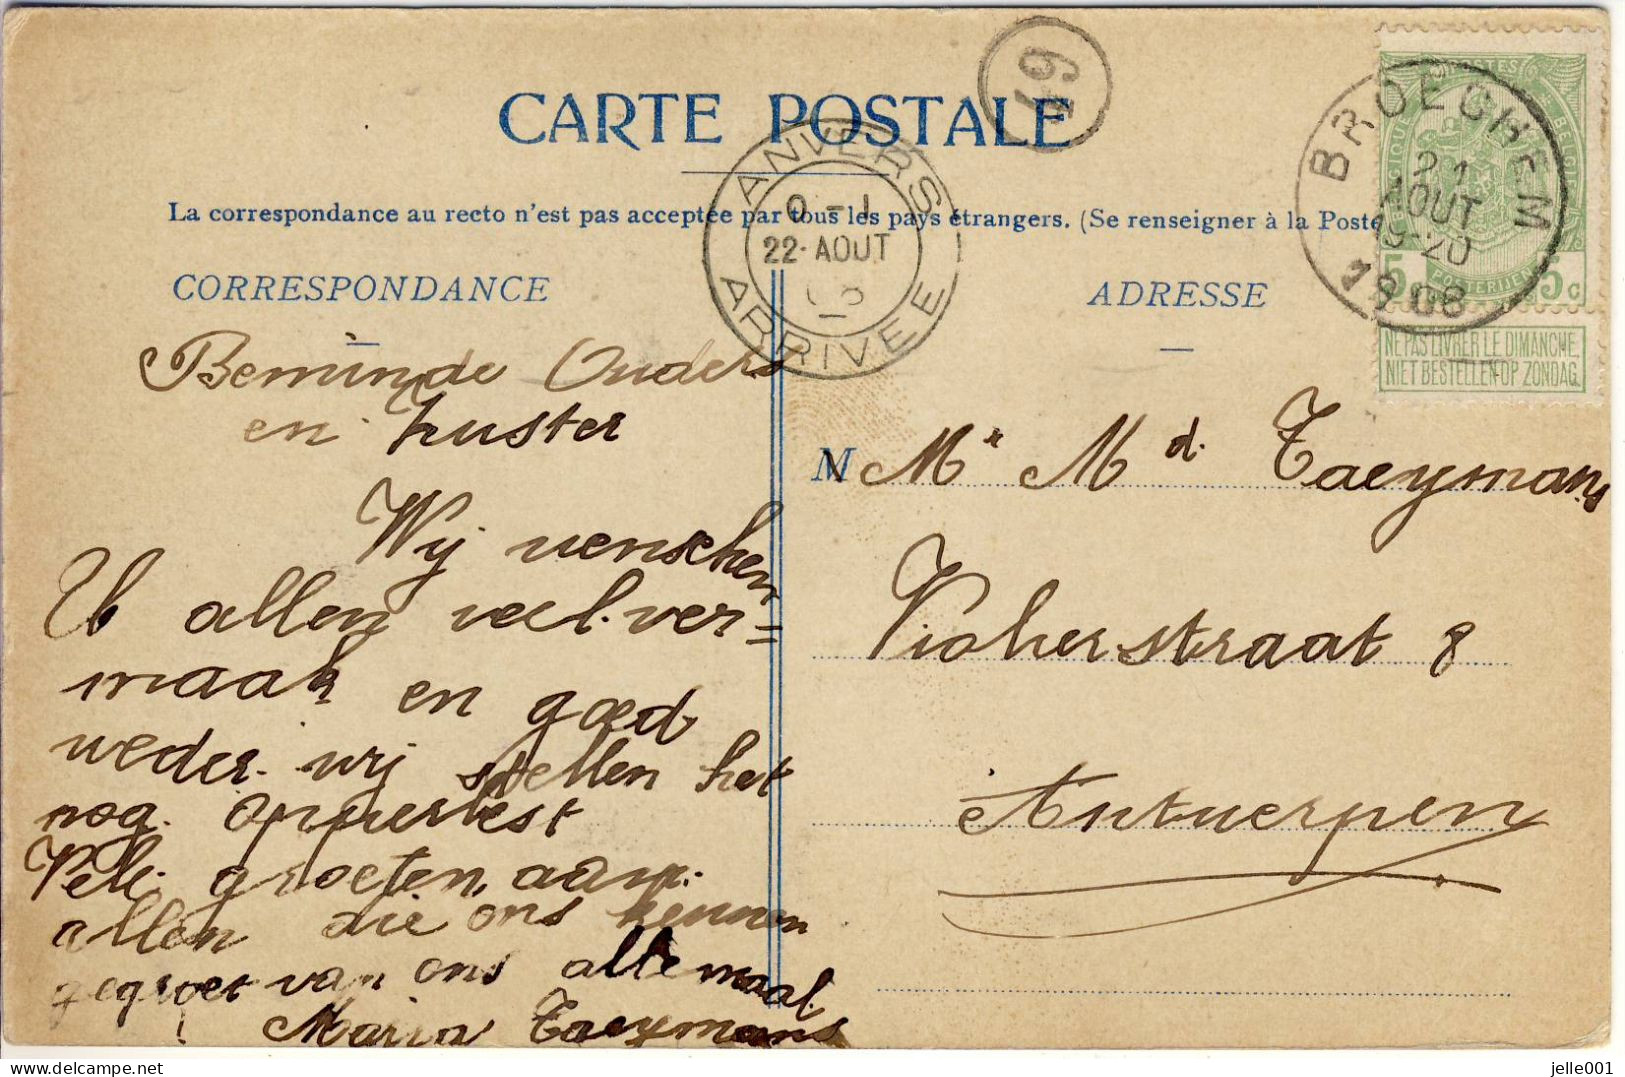 CARTE POSTALE
La correspondance au recto n'est pas acceptée par tous les pays étrangers. (Se renseigner à la Poste
CORRESPONDANCE
ADRESSE
49
ANVERS
0-1
22·AOUT
ARRIVEE
BROECHEM
21
AOUT
19-20
1908
POSTES
BELGIQUE BELGIE
5c 5c
POSTERIJEN
NE PAS LIVRER LE DIMANCHE
NIET BESTELLEN OP ZONDAG
Beminde Ouders
en Zuster
Wij wenschen
U allen veel ver=
maak en goed
weder. wij stellen het
nog. opperbest
Vele groeten, aan
allen die ons kennen
gegroet van ons allemaal
Maria Taeymans
M
Mr Md. Taeymans
Violierstraat 8
Antwerpen
jelle001